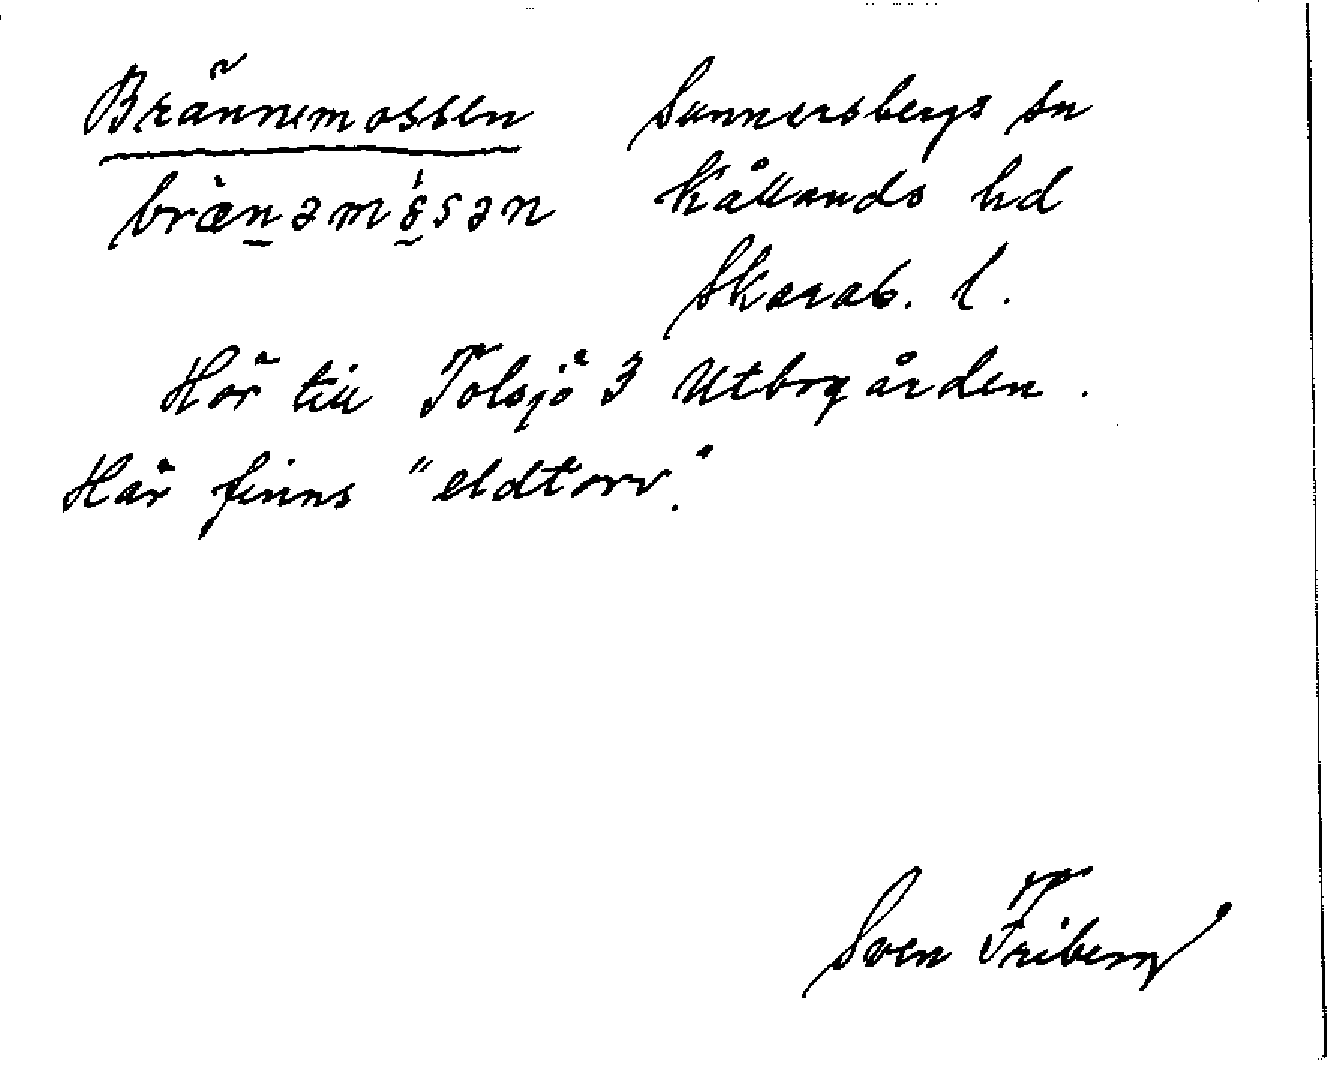 Brännemossen Sunnersbergs sn
Kållands hd
Skarab. l.
Hör till Tolsjö 3 Utbogården.
Här finns "eldtorv".
Sven Friberg